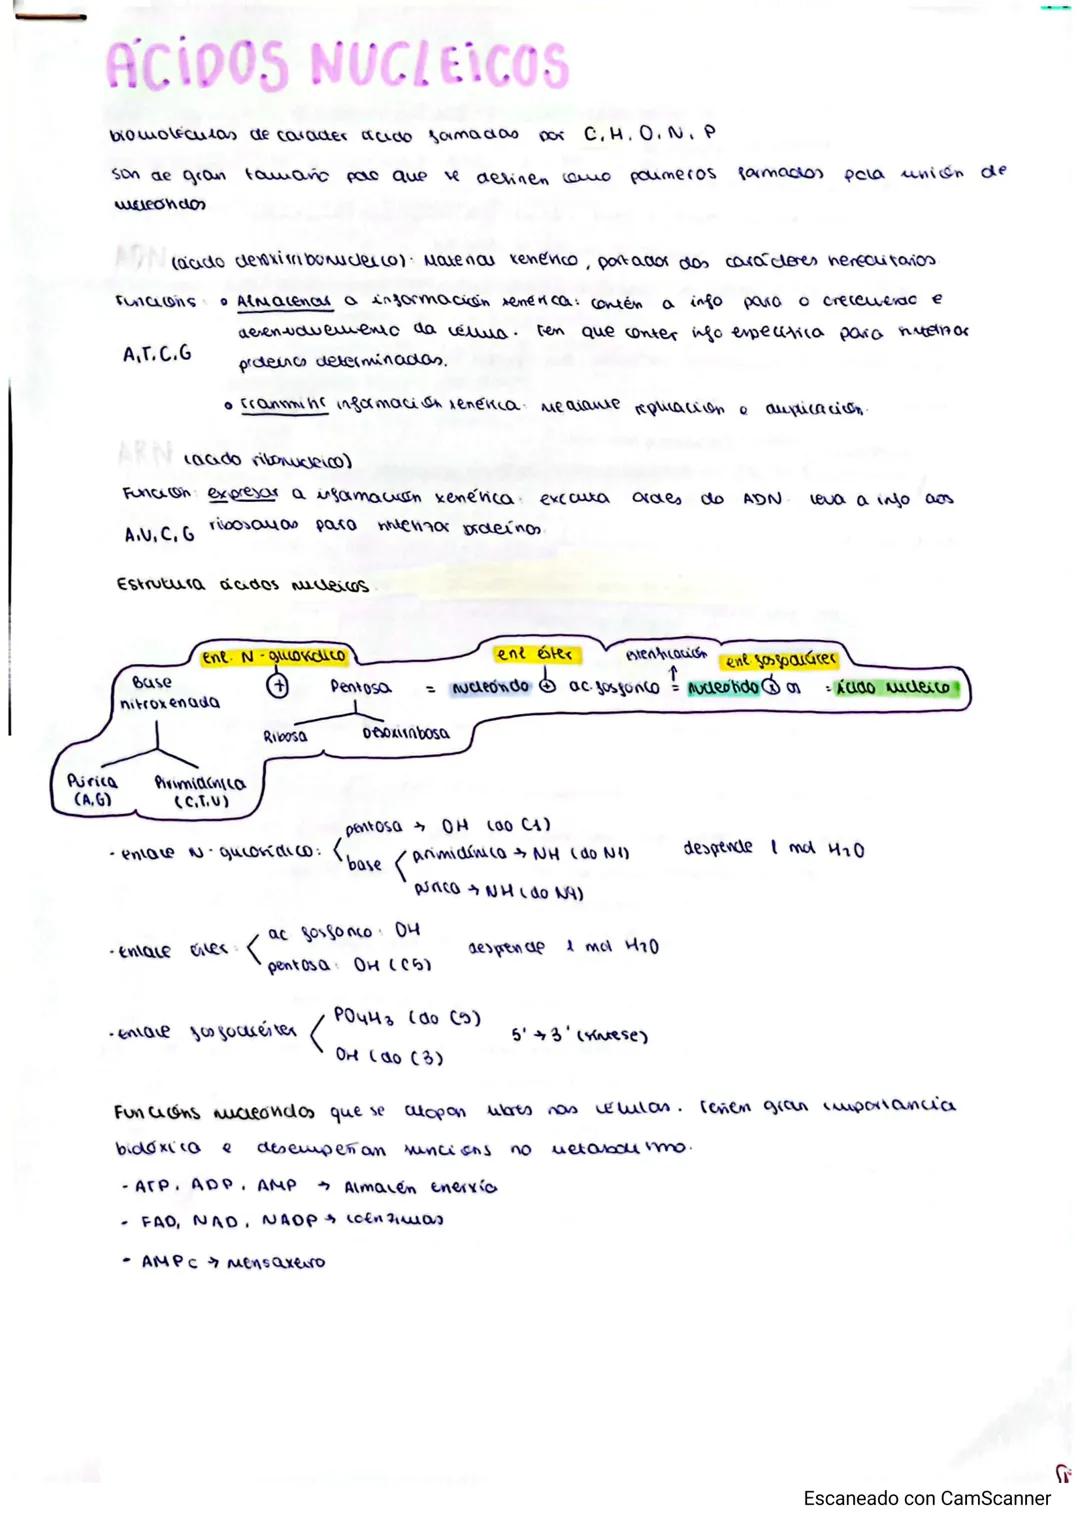 ÁCIDOS NUCLEICOS
biomoléculas de carácter ácido formadas por C, H, O, N, P
son de gran tamaño polo que se definen como polímeros formados pola unión de
nucleótidos
ADN (ácido desoxirribonucleico): Material xenético, portador dos carácteres hereditarios
Funcións: • Almacenar a información xenética: contén a info para o crecemento e
desenvolvemento da célula. Ten que conter info específica para sintetizar
A,T,C,G
proteínas determinadas.
• Transmitir información xenética: mediante replicación o duplicación.
ARN (ácido ribonucleico)
Función: expresar a información xenética: executa ordes do ADN. Leva a info aos
A,U,C,G ribosomas para sintetizar proteínas.
Estrutura ácidos nucleicos
enl. N-glucosídico enl éster esterificación enl fosfodiéster
Base nitroxenada + Pentosa = nucleósido + ac. fosfórico = nucleótido = Ácido nucleico
Ribosa Desoxirribosa
Púrica Pirimidínica
(A,G) (C,T,U)
pentosa → OH (do C1)
- enlace N-glucosídico: base pirimidínica → NH (do N1) desprende 1 mol H2O
púrica → NH (do N9)
ac fosfórico: OH
- Enlace éster: desprende 1 mol H2O
pentosa: OH (C5)
PO4H3 (do C5)
- enlace fosfodiéster 5' → 3' (síntese)
OH (do C3)
Funcións nucleótidos que se atopan libres nas células. Teñen gran importancia
biolóxica e desempeñan funcións no metabolismo.
- ATP, ADP, AMP → Almacén enerxía
- FAD, NAD, NADP → coenzimas
- AMPc → mensaxeiro
Escaneado con CamScanner